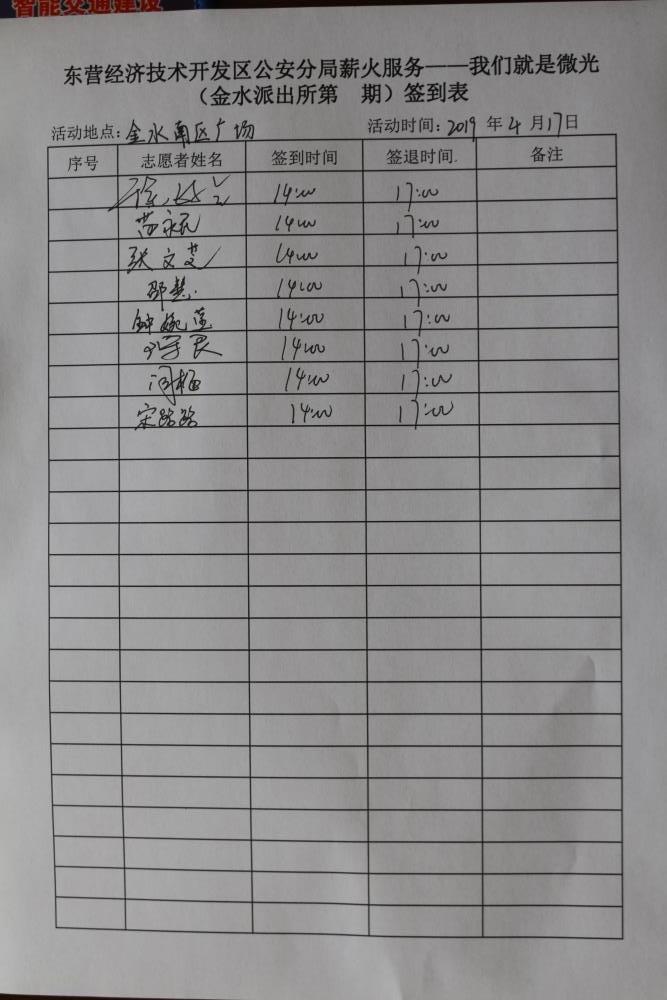 智能交通建设
东营经济技术开发区公安分局薪火服务——我们就是微光
（金水派出所第 期）签到表
活动地点：金水南区广场 活动时间：2019 年 4 月 17 日
序号 志愿者姓名 签到时间 签退时间 备注
14:00 17:00
苗永民 14:00 17:00
张文芝 14:00 17:00
邵慧 14:00 17:00
钟婉莹 14:00 17:00
14:00 17:00
14:00 17:00
宋路路 14:00 17:00